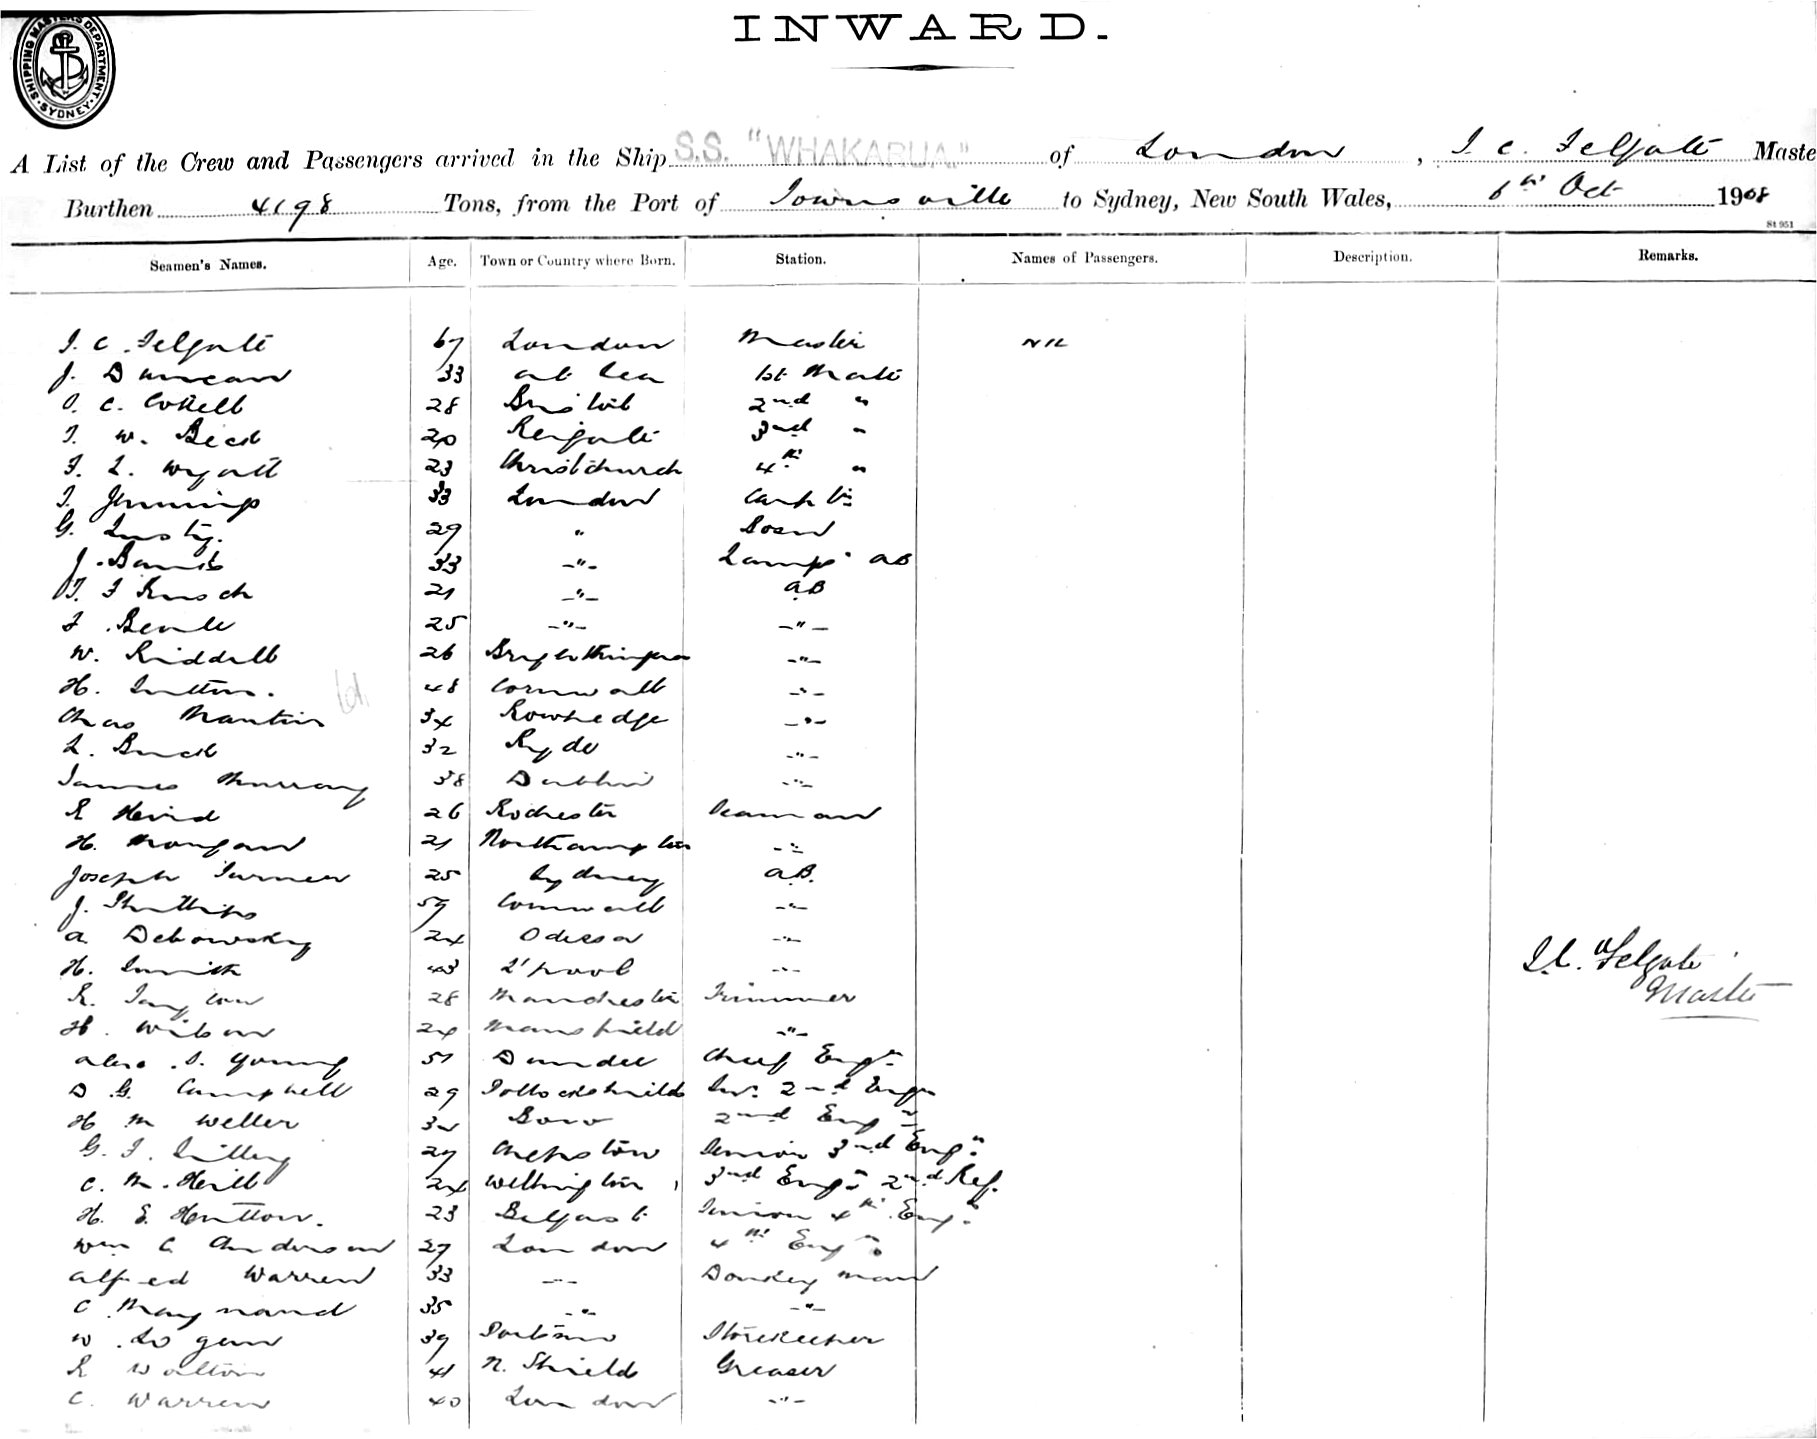 INWARD.
SHIPPING MASTERS DEPARTMENT. SYDNEY
A List of the Crew and Passengers arrived in the Ship S.S. "WHAKARUA." of London, Maste
Burthen 4198 Tons, from the Port of Townsville to Sydney, New South Wales, 6th Oct 1908
St 951
Seamen's Names. Age. Town or Country where Born. Station. Names of Passengers. Description. Remarks.
C. Felgate 67 London Master NIL
J. Duncan 33 at Sea 1st Mate
C. Cottell 28 Bristol 2nd "
W. 20 Reigate 3rd "
L. Wyatt 23 Christchurch 4th "
Jennings 33 London Carptr
G. Lusty. 29 " Bosn
J. 33 -"- Lamps AB
21 -"- AB
25 -"- -"-
W. Riddell 26 -"-
H. 48 Cornwall -"-
Chas Martin 34 Rowhedge -"-
L. Buck 32 Ryde -"-
James Murray 38 Dublin -"-
R Hird 26 Rochester Seaman
H. Morgan 21 Northampton -"-
Joseph Turner 25 Sydney A.B.
J. Phillips 59 Cornwall -"-
A Debowsky 24 Odessa -"-
H. Smith 43 L'pool -"-
R. Taylor 28 Manchester Trimmer
H. Wilson 24 Mansfield -"-
Alex. S. Young 51 Dundee Chief Engr
D G. Campbell 29 Pollockshields 2nd Engr
H M Weller 32 Bow 2nd Engr
G. 27 Chepstow Senior 3rd Engr
C. M. Hill 24 Wellington 3rd Engr 2nd Ref.
H. E. Hutton. 23 Belfast Junior 4th Engr
Wm C Anderson 27 London 4th Engr
Alfred Warren 33 -"- Donkeyman
C Maynard 35 -"- -"-
W. Logan 39 Storekeeper
R Walton 41 N. Shields Greaser
C. Warren 40 London -"-
Felgate
Master